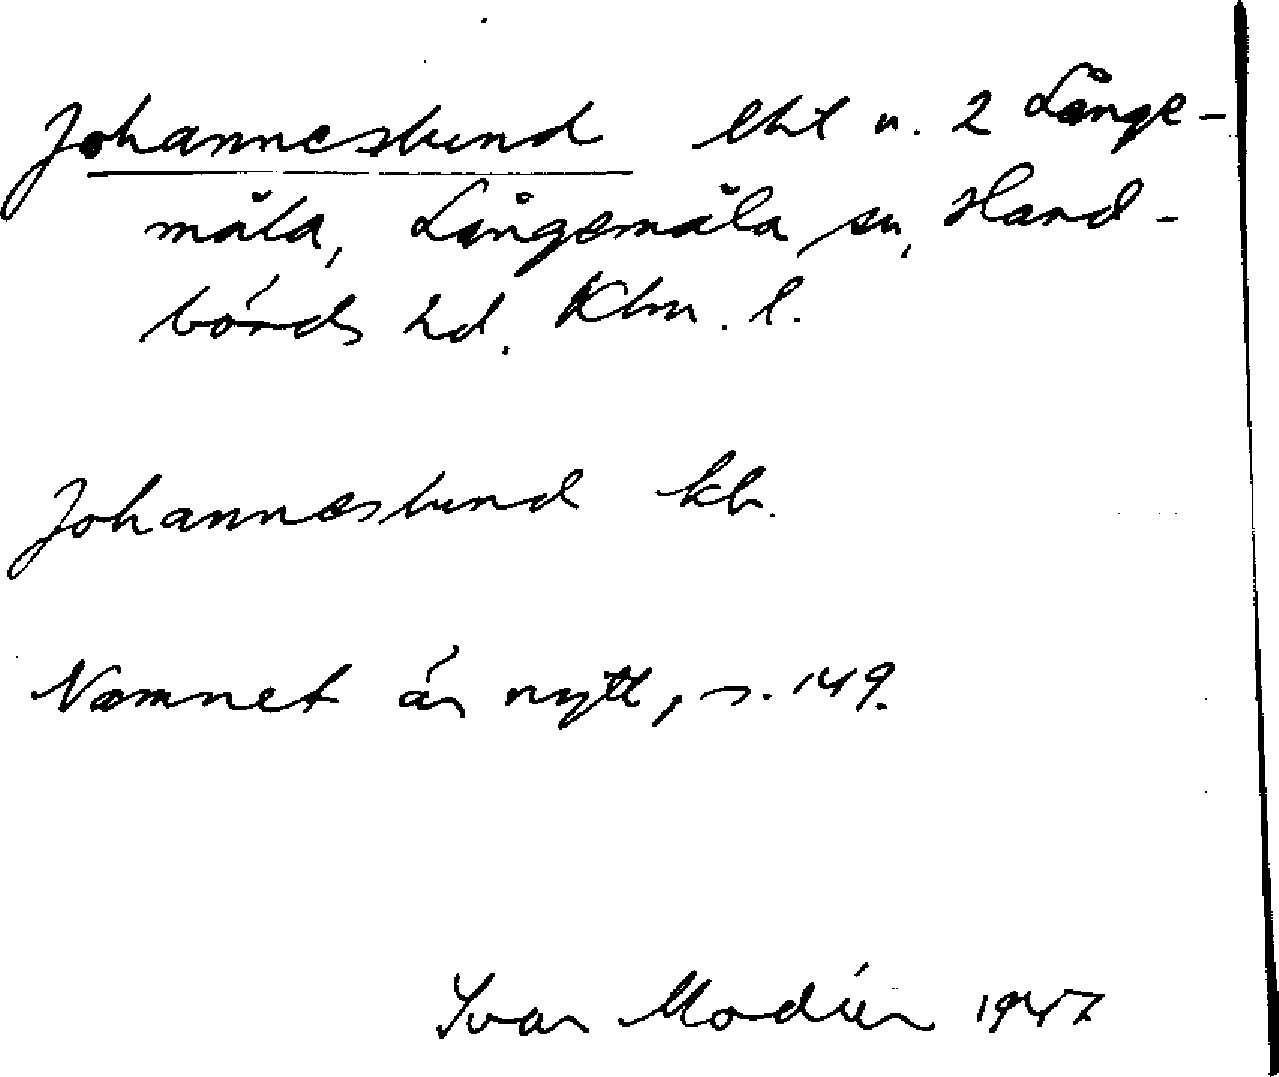 Johanneslund lht u. 2 Långe-
måla, Långemåla sn, Hand-
börds hd. Klm. l.
Johanneslund kb.
Namnet är nytt, s. 149.
Ivar Modéer 1947